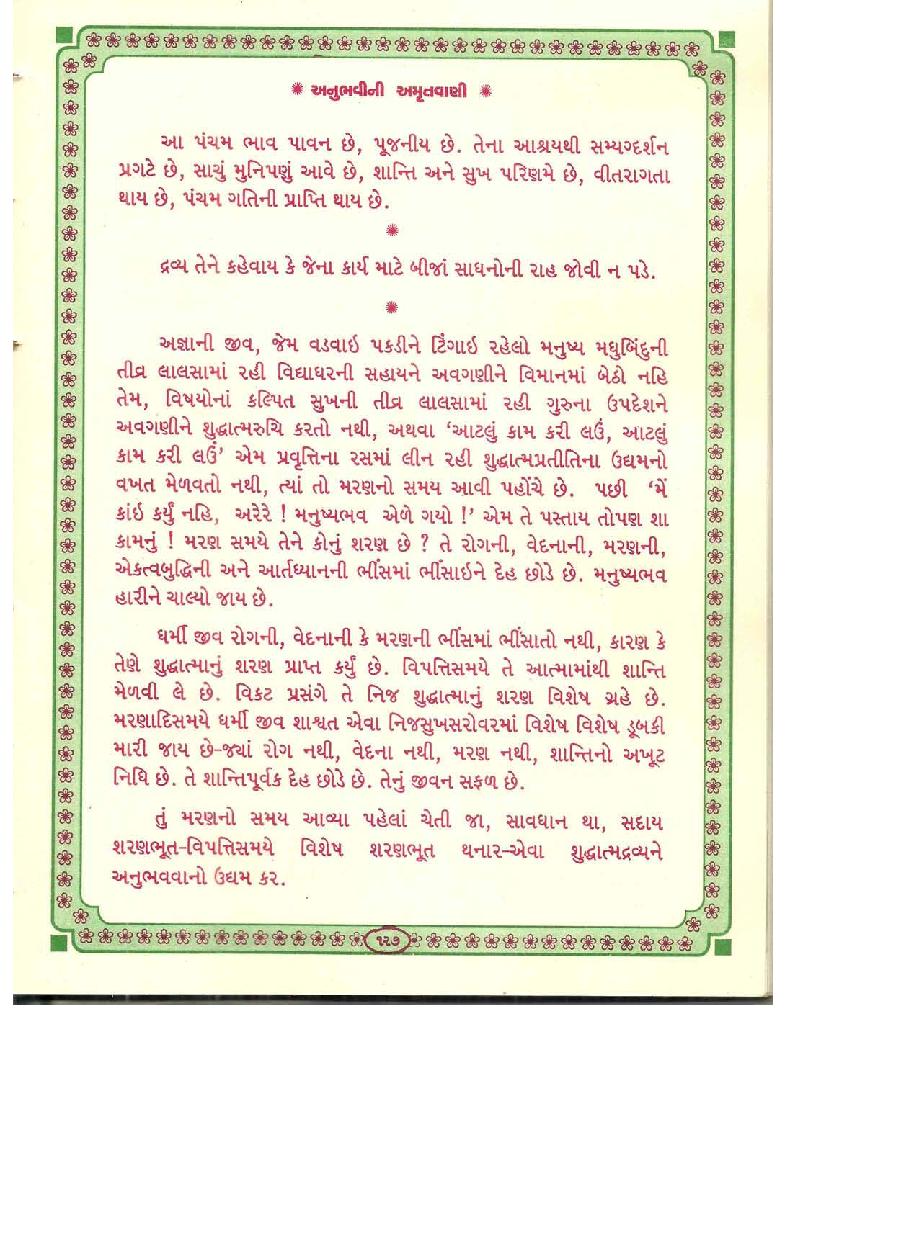 અનુભવીની અમૃતવાણી
આ પંચમ ભાવ પાવન છે, પૂજનીય છે. તેના આશ્રયથી સમ્યગ્દર્શન
પ્રગટે છે, સાચું મુનિપણું આવે છે, શાન્તિ અને સુખ પરિણમે છે, વીતરાગતા
થાય છે, પંચમ ગતિની પ્રાપ્તિ થાય છે.
દ્રવ્ય તેને કહેવાય કે જેના કાર્ય માટે બીજાં સાધનોની રાહ જોવી ન પડે.
અજ્ઞાની જીવ, જેમ વડવાઇ પકડીને ટિંગાઇ રહેલો મનુષ્ય મધુબિંદુની
તીવ્ર લાલસામાં રહી વિદ્યાધરની સહાયને અવગણીને વિમાનમાં બેઠો નહિ
તેમ, વિષયોનાં કલ્પિત સુખની તીવ્ર લાલસામાં રહી ગુરુના ઉપદેશને
અવગણીને શુદ્ધાત્મરુચિ કરતો નથી, અથવા ‘આટલું કામ કરી લઉં, આટલું
કામ કરી લઉં’ એમ પ્રવૃત્તિના રસમાં લીન રહી શુદ્ધાત્મપ્રતીતિના ઉદ્યમનો
વખત મેળવતો નથી, ત્યાં તો મરણનો સમય આવી પહોંચે છે. પછી ‘મેં
કાંઇ કર્યું નહિ, અરેરે ! મનુષ્યભવ એળે ગયો !’ એમ તે પસ્તાય તોપણ શા
કામનું ! મરણ સમયે તેને કોનું શરણ છે ? તે રોગની, વેદનાની, મરણની,
એકત્વબુદ્ધિની અને આર્તધ્યાનની ભીંસમાં ભીંસાઇને દેહ છોડે છે. મનુષ્યભવ
હારીને ચાલ્યો જાય છે.
ધર્મી જીવ રોગની, વેદનાની કે મરણની ભીંસમાં ભીંસાતો નથી, કારણ કે
તેણે શુદ્ધાત્માનું શરણ પ્રાપ્ત કર્યું છે. વિપત્તિસમયે તે આત્મામાંથી શાન્તિ
મેળવી લે છે. વિકટ પ્રસંગે તે નિજ શુદ્ધાત્માનું શરણ વિશેષ ગ્રહે છે.
મરણાદિસમયે ધર્મી જીવ શાશ્વત એવા નિજસુખસરોવરમાં વિશેષ વિશેષ ડૂબકી
મારી જાય છે-જ્યાં રોગ નથી, વેદના નથી, મરણ નથી, શાન્તિનો અખૂટ
નિધિ છે. તે શાન્તિપૂર્વક દેહ છોડે છે. તેનું જીવન સફળ છે.
તું મરણનો સમય આવ્યા પહેલાં ચેતી જા, સાવધાન થા, સદાય
શરણભૂત-વિપત્તિસમયે વિશેષ શરણભૂત થનાર-એવા શુદ્ધાત્મદ્રવ્યને
અનુભવવાનો ઉદ્યમ કર.
૧૨૭